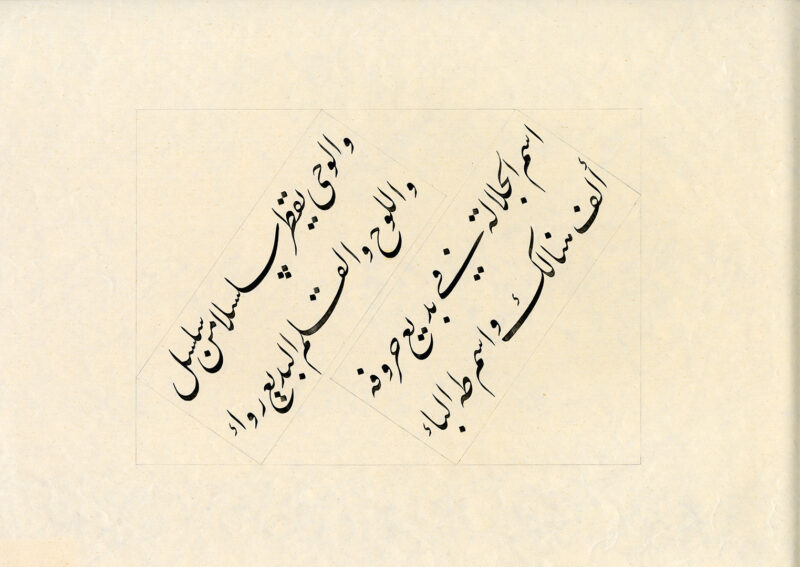 اسم الجلالة في بديع حروفه
ألف هنالك واسم طه الباء
والوحي يقطر سلسلا من سلسل
واللوح والقلم البديع رواء